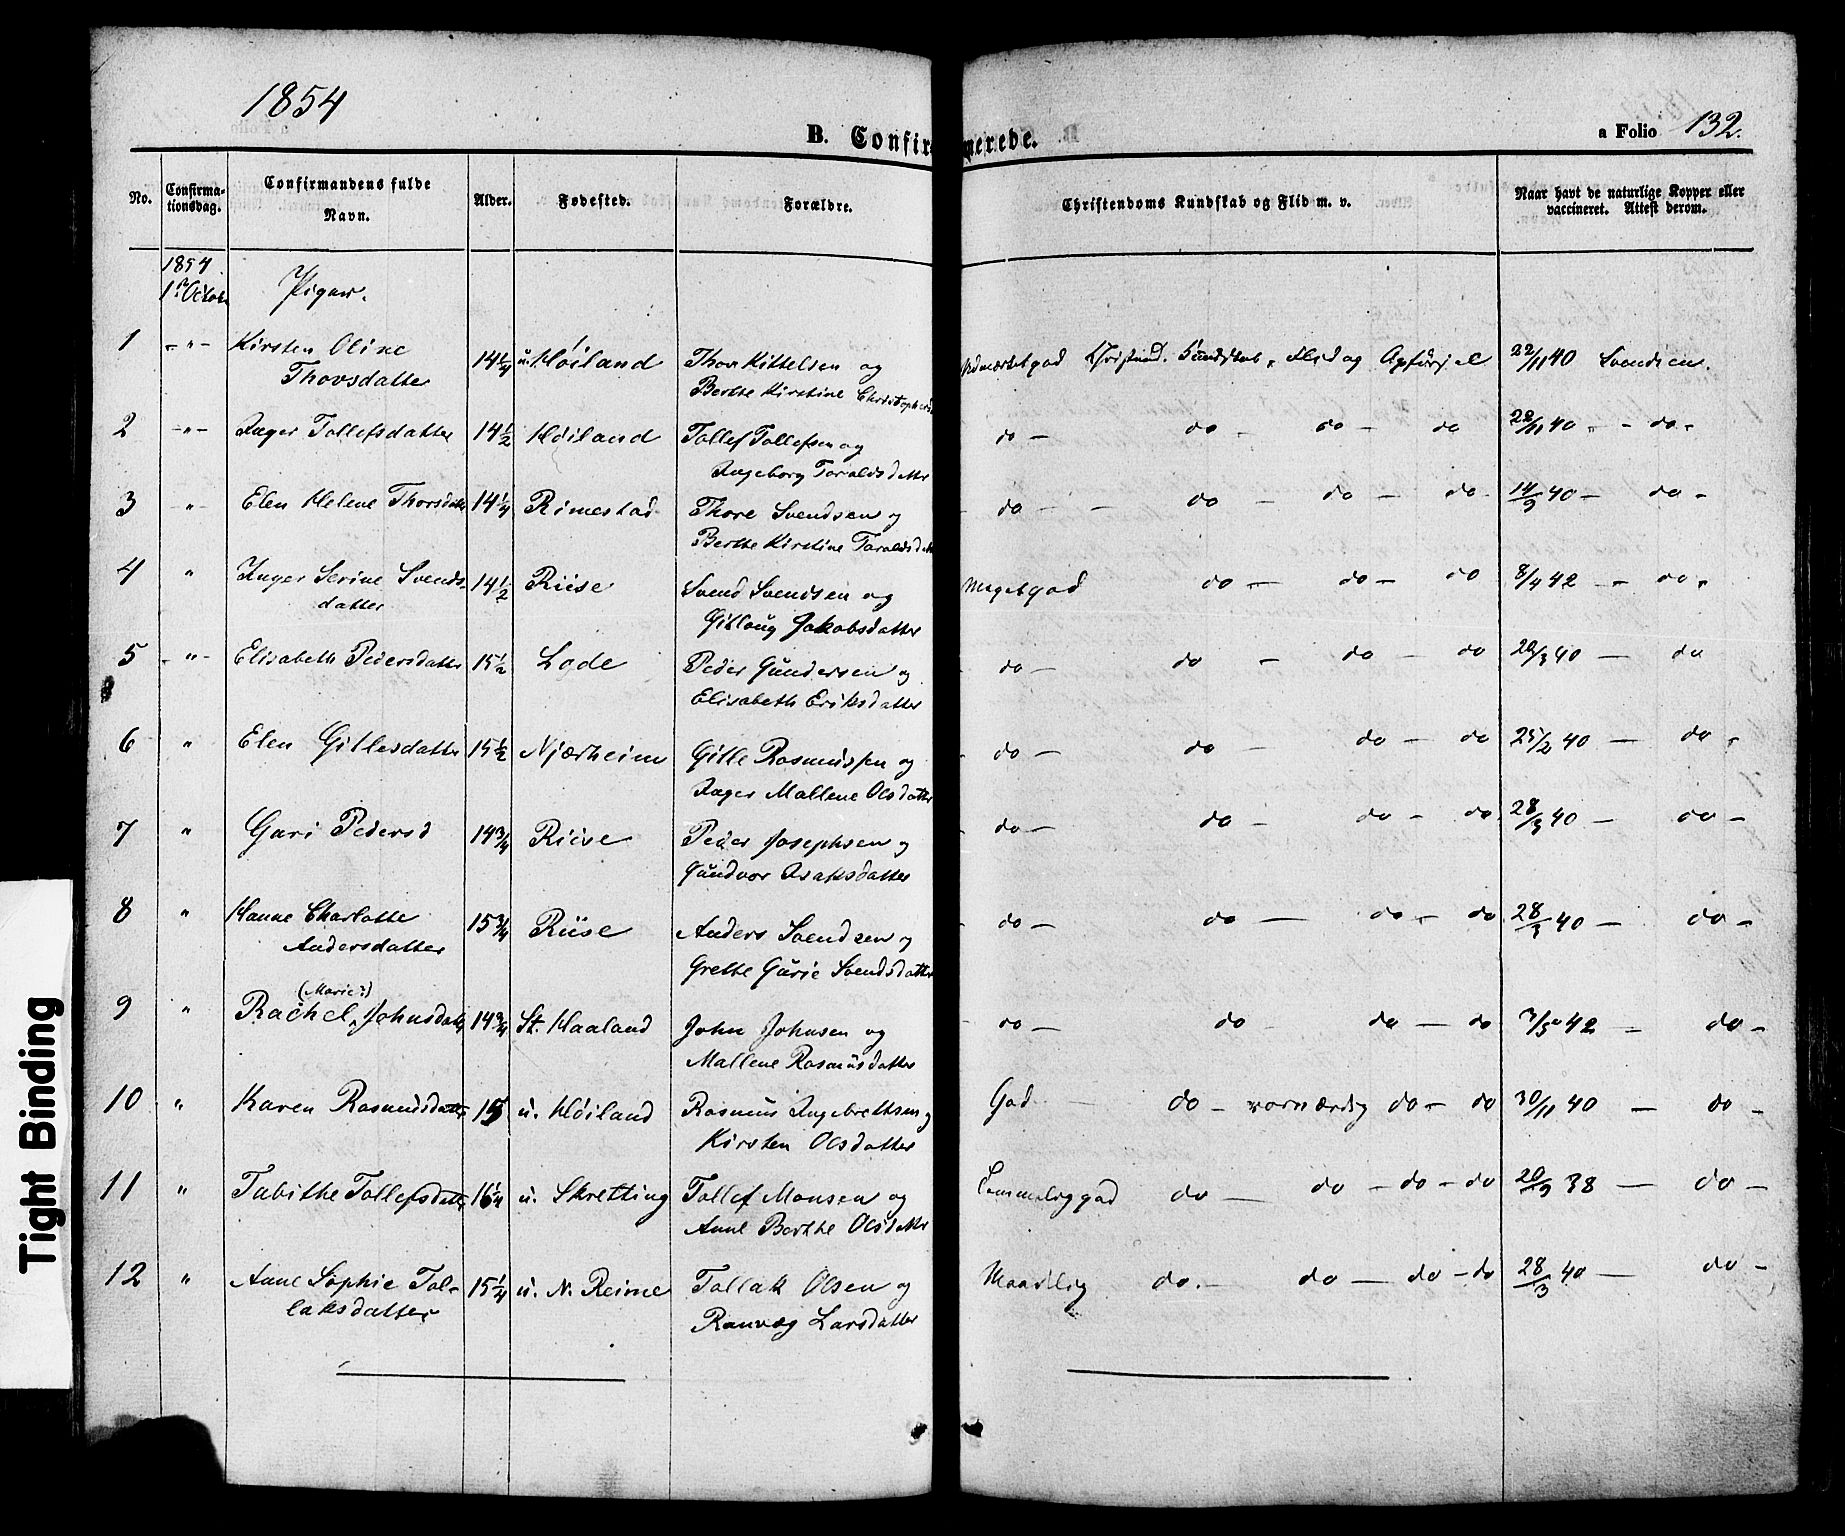 1854
B. Confirmerede.
a Folio 132.
No. Confirmationsdag. Confirmandens fulde Navn. Alder. Fødested. Forældre. Christendoms Kundskab og Flid m. v. Naar havt de naturlige Kopper eller vaccineret. Attest derom.
1854
1ste October Piger.
1 -"- Kirsten Oline 14 1/4 u. Høiland Thor Kittelsen og Udmærket god Christend. Kundskab, Flid og Opførsel 22/11 40 Svendsen.
Thorsdatter Berthe Kirstine Christophersd
2 -"- Inger Tollefsdatter 14 1/2 Høiland Tollef Tollefsen og do - do - do - do 22/11 40 - do -
Ingeborg Taraldsdatter
3 " Elen Helene Thorsdatter 14 1/4 Rimestad Thore Svendsen og do - do - do - do - 14/9 40 - do -
Berthe Kirstine Taraldsdt
4 " Inger Serine Svends- 14 1/2 Riise Svend Svendsen og Meget god do - do - do 8/4 42 - do -
datter Gitlaug Jakobsdatter
5 -"- Elisabeth Pedersdatter 15 1/2 Lode Peder Gundersen og do - do - do - do 28/3 40 - do
Elisabeth Eriksdatter
6 " Elen Gitlesdatter 15 1/2 Njærheim Gitle Rasmussen og do - do - do - do 25/2 40 - do -
Inger Mallene Olsdatter
7 " Guri Pedersd 14 3/4 Riise Peder Josephsen og do - do - do - do 28/3 40 - do -
Gundvor Isaksdatter
8 " Hanne Charlotte 15 3/4 Riise Anders Svendsen og do - do - do - do 28/3 40 - do -
Andersdatter Grethe Gurie Svendsdatter
(Marie?)
9 " Rachel, Johnsdatter 14 3/4 St. Haaland John Johnsen og do - do - do - do 42 - do -
Mallene Rasmusdatter
10 " Karen Rasmusdatter 15 u. Høiland Rasmus Ingebrethsen og God do - do - do 30/11 40 - do -
Kirsten Olsdatter
11 " Tabithe Tollefsdatter 16 1/4 u. Skretting Tollef Monsen og Temmelig god do - do - do - do 20/9 38 - do -
Anne Berthe Olsdatter
12 " Anne Sophie Tol- 15 1/4 u. N. Reime Tollak Olsen og Maadelig do. - do - do - do 28/3 40 - do -
laksdatter Ranveg Larsdatter
Tight Binding